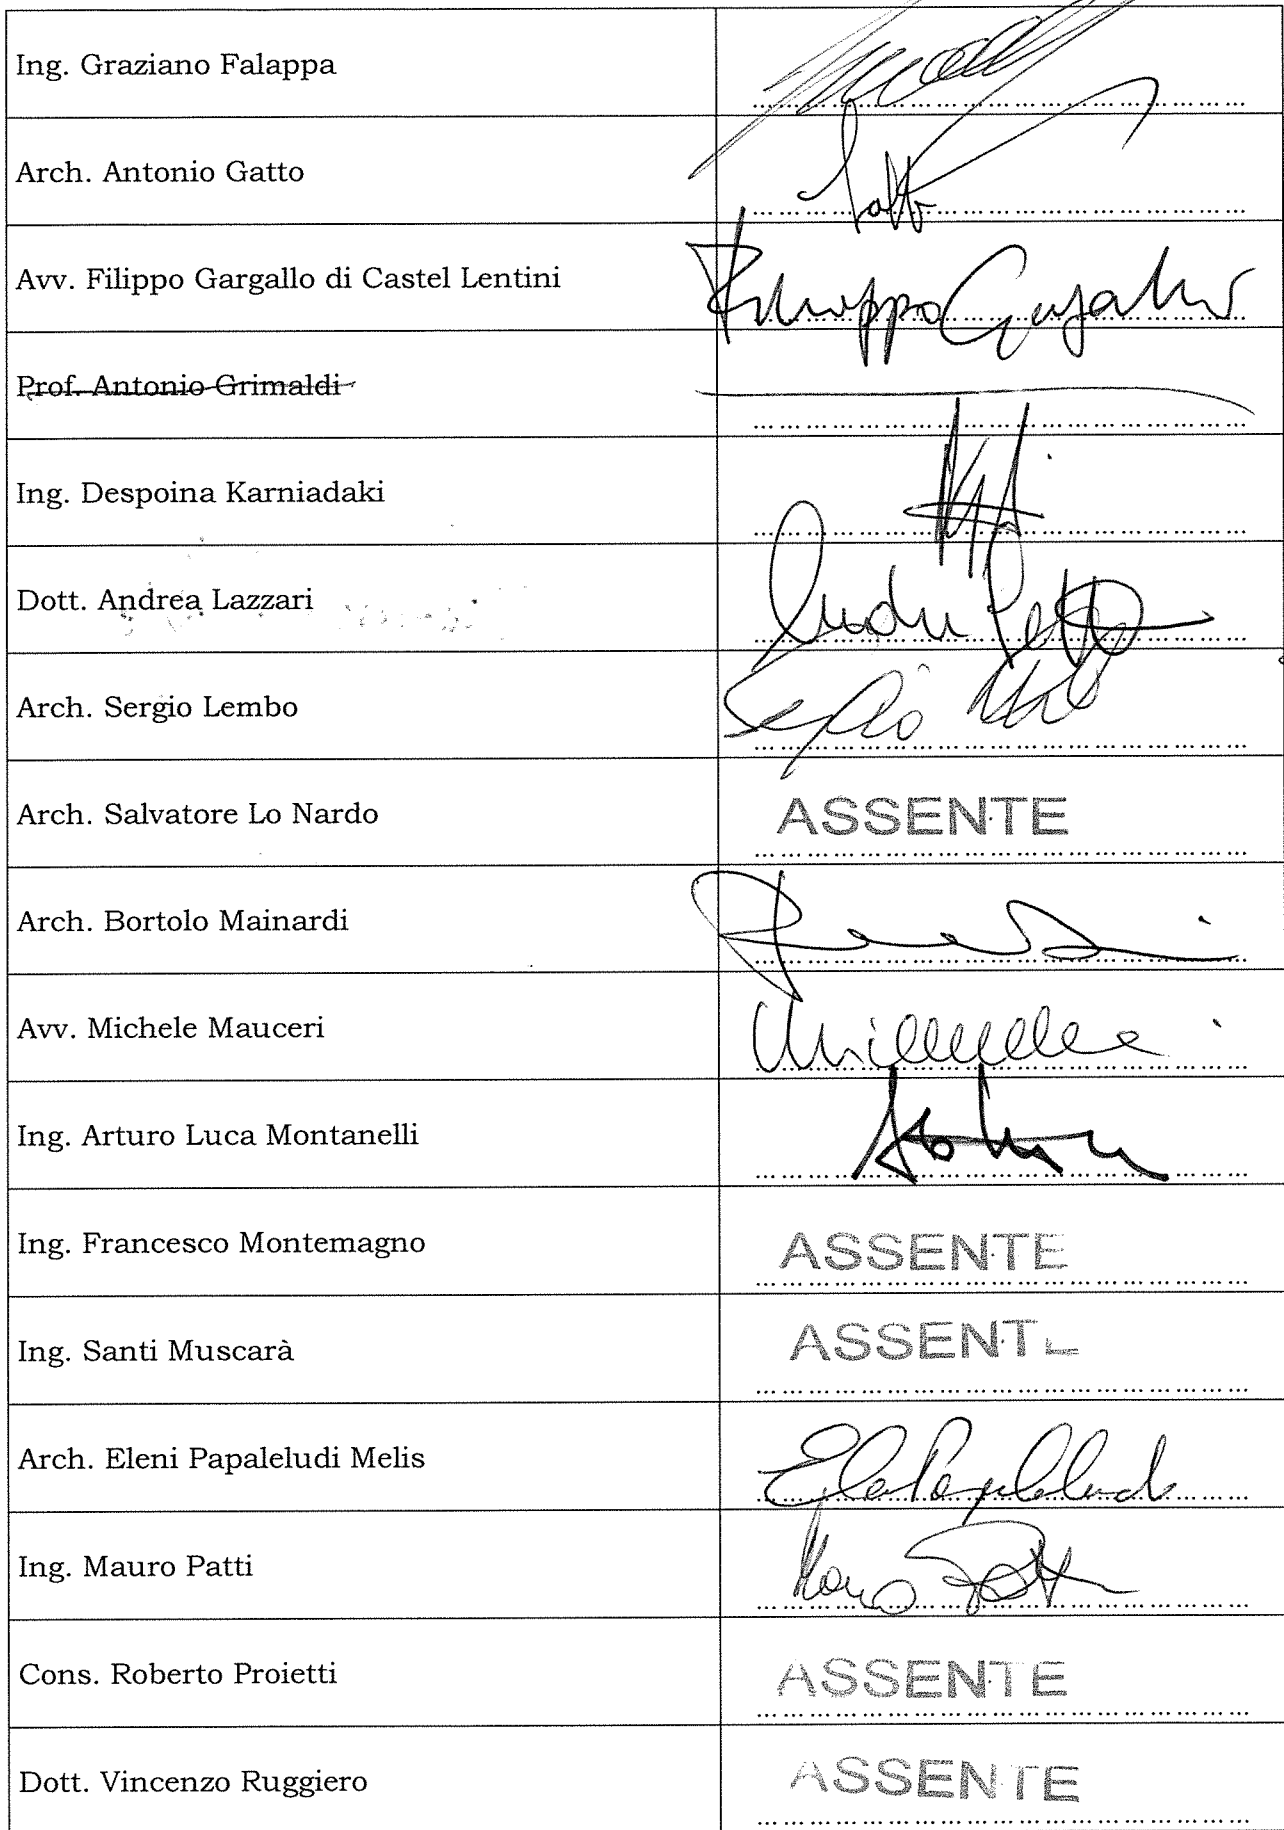 Ing. Graziano Falappa
Arch. Antonio Gatto
Gatto
Avv. Filippo Gargallo di Castel Lentini
Filippo Gargallo
Prof. Antonio Grimaldi
Ing. Despoina Karniadaki
Dott. Andrea Lazzari
Arch. Sergio Lembo
Sergio Lembo
Arch. Salvatore Lo Nardo
ASSENTE
Arch. Bortolo Mainardi
Avv. Michele Mauceri
Ing. Arturo Luca Montanelli
Ing. Francesco Montemagno
ASSENTE
Ing. Santi Muscarà
ASSENTE
Arch. Eleni Papaleludi Melis
Ing. Mauro Patti
Mauro Patti
Cons. Roberto Proietti
ASSENTE
Dott. Vincenzo Ruggiero
ASSENTE